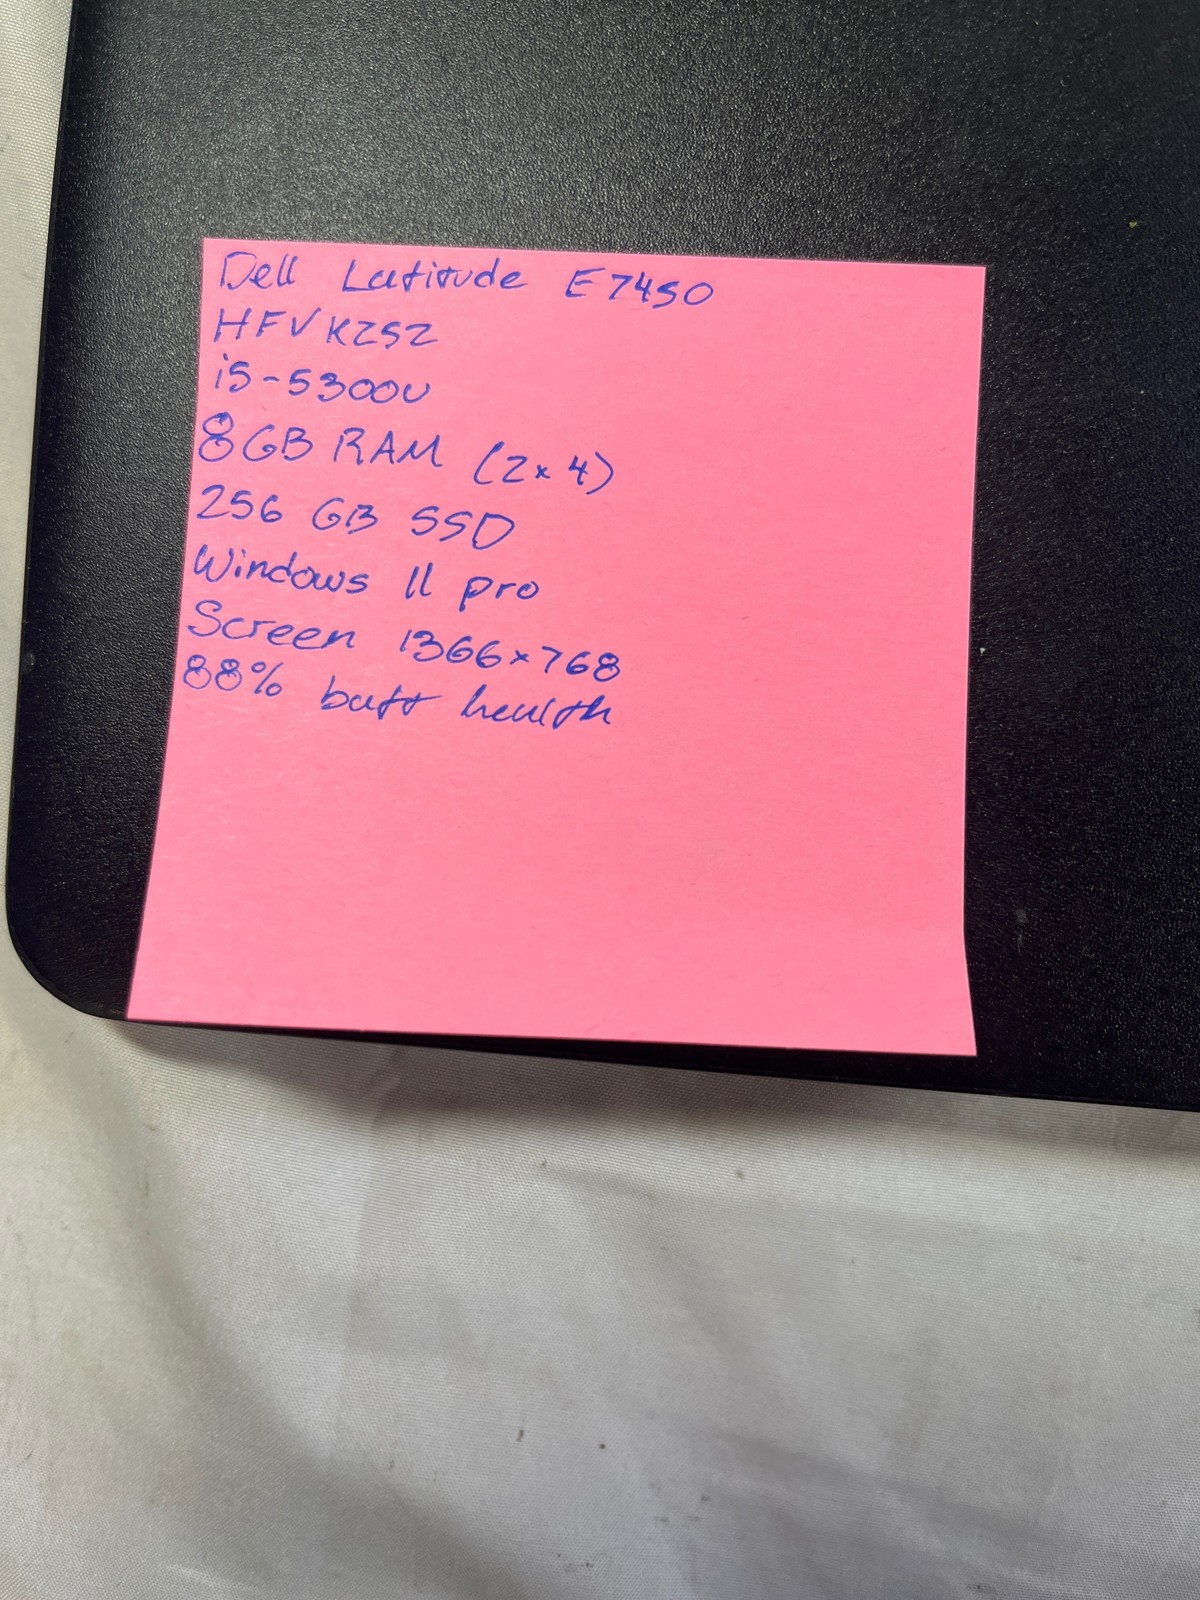 Dell Latitude E7450
HFVKZ52
i5-5300U
8GB RAM (2x4)
256 GB SSD
Windows 11 pro
Screen 1366x768
88% batt health